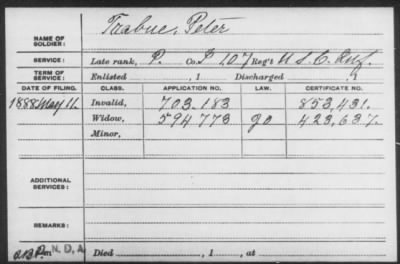 NAME OF SOLDIER: Trabue, Peter
SERVICE: Late rank, P. Co. B 107 Reg't U S C Inf.
TERM OF SERVICE: Enlisted , 1 Discharged , 1
DATE OF FILING. CLASS. APPLICATION NO. LAW. CERTIFICATE NO.
1888 May 11 Invalid, 703.183 853,431.
Widow, 594778 go 423,637.
Minor,
ADDITIONAL SERVICES:
REMARKS:
N.D.A.
Died , 1 , at